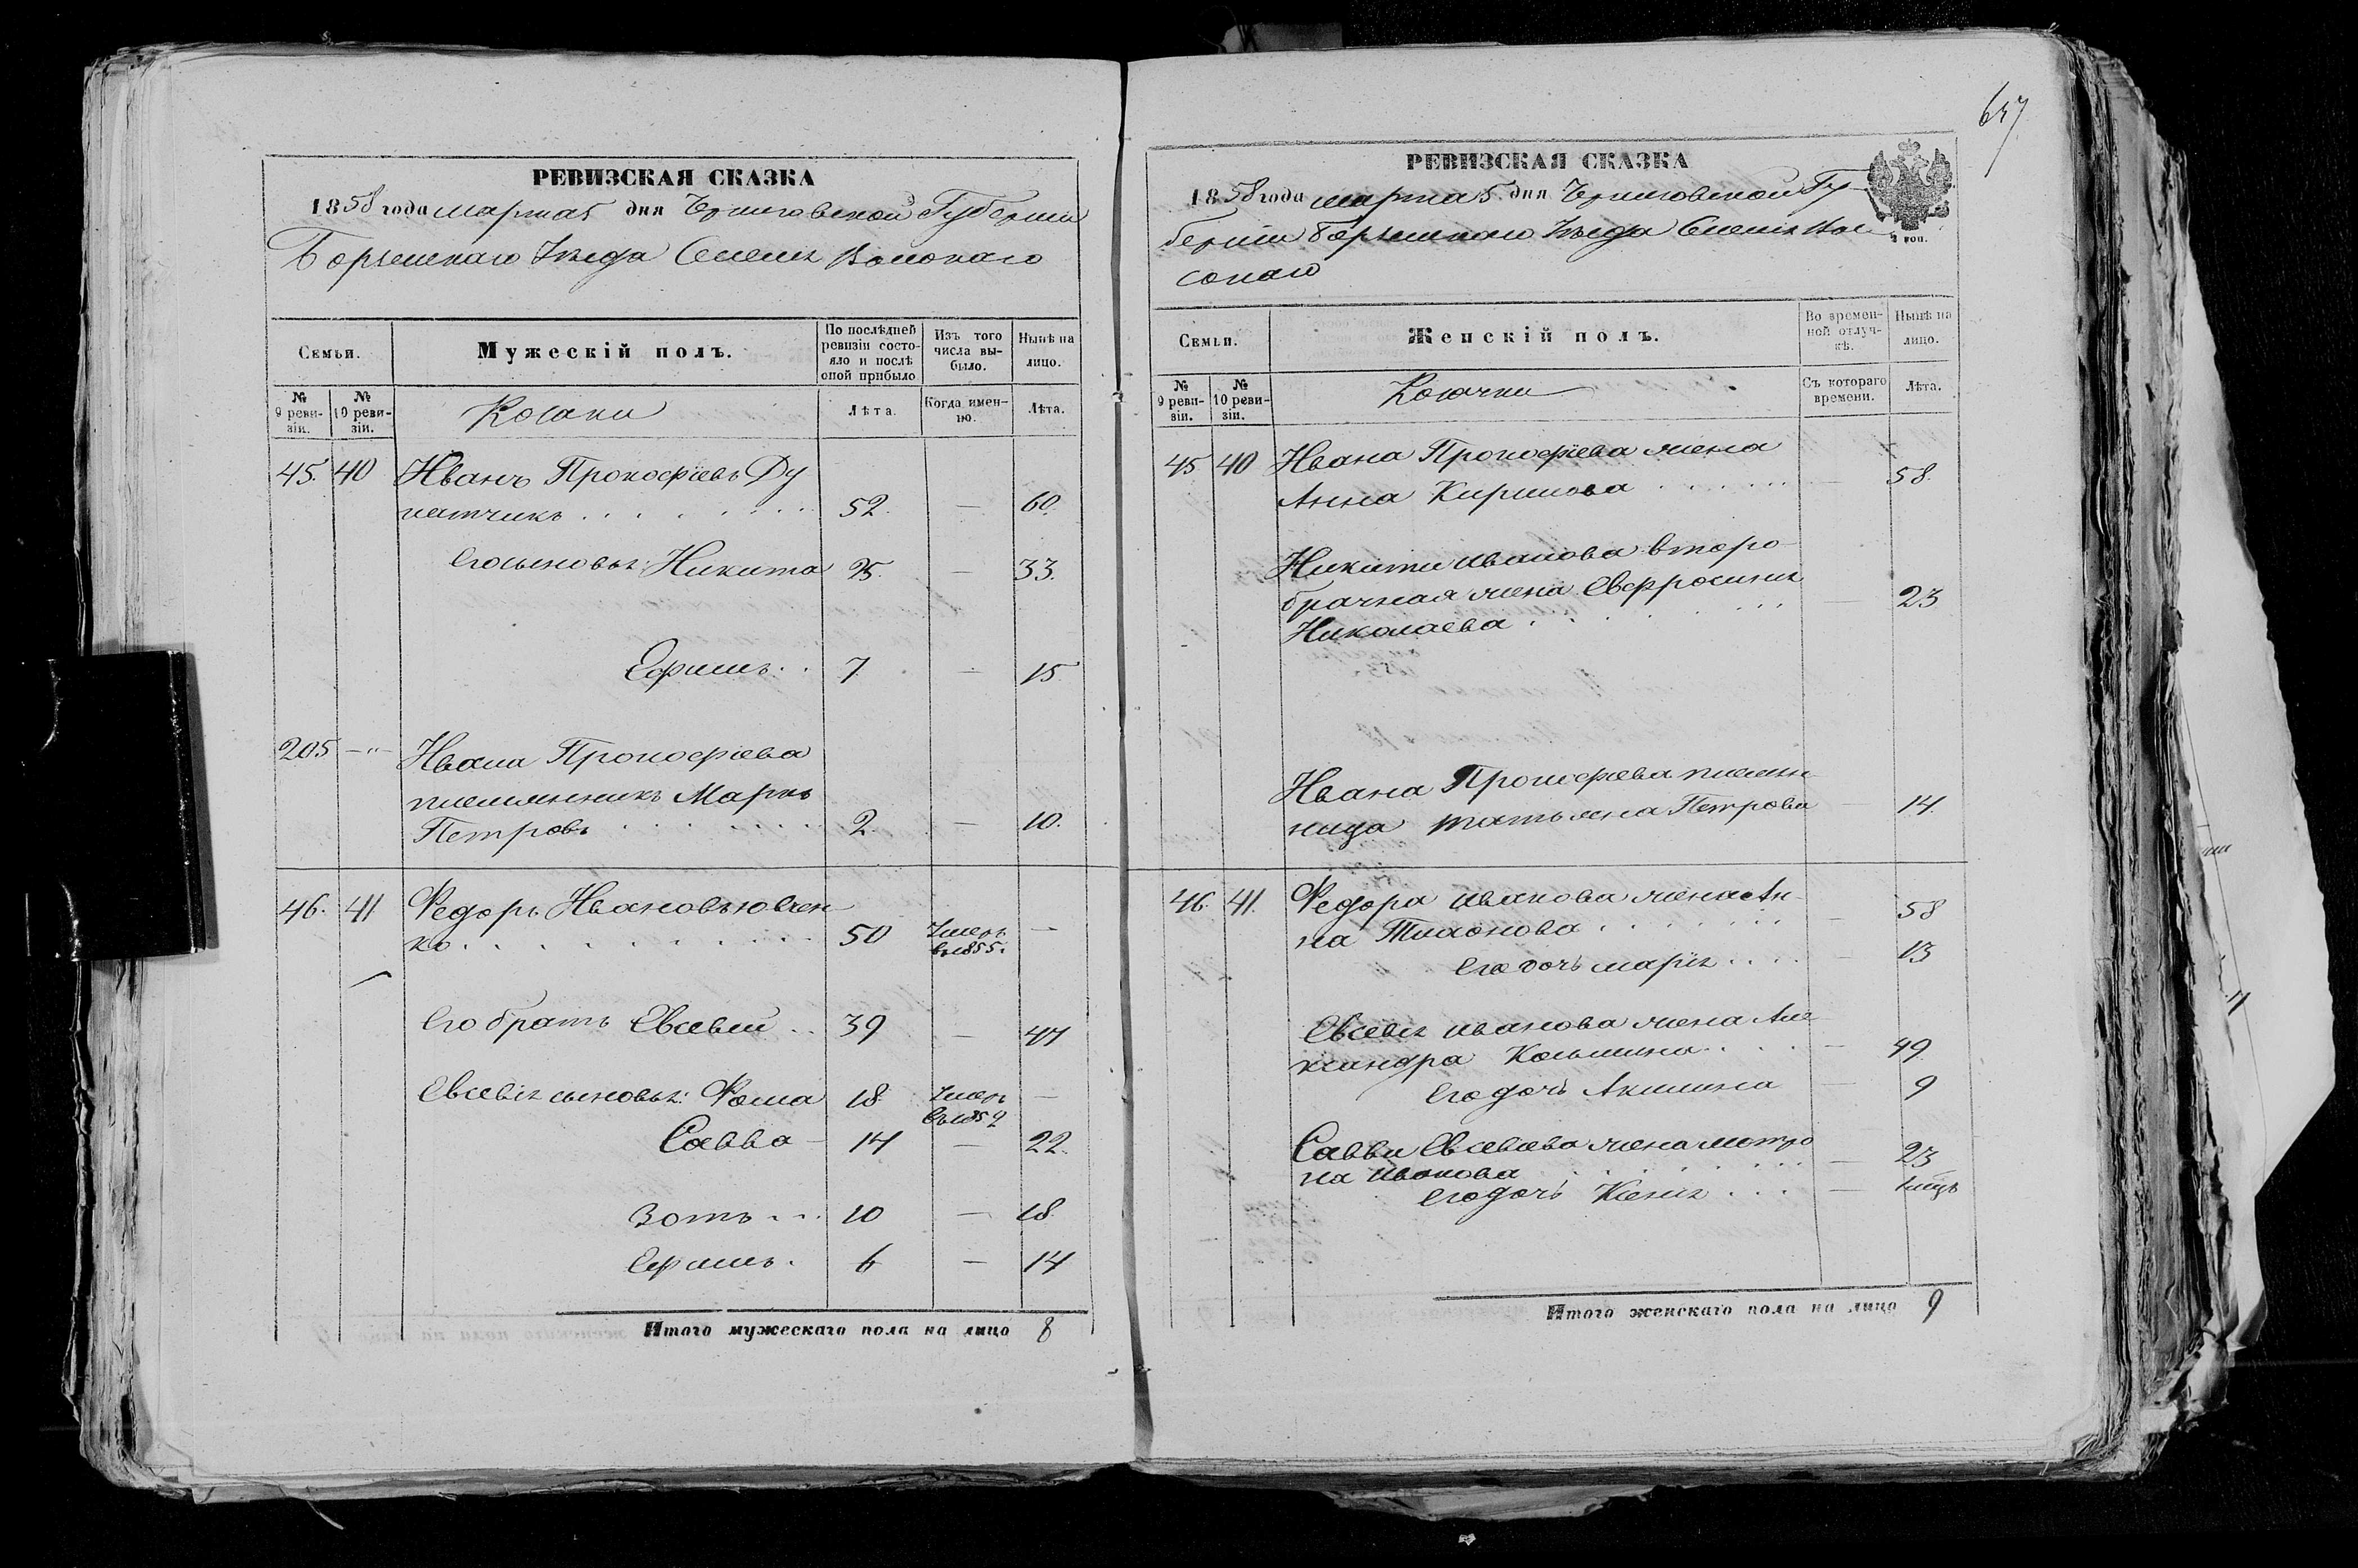 647
РЕВИЗСКАЯ СКАЗКА
1858 года марта 5 дня Черниговской Губернии
Борзенскаго Уезда
Семьи.
Мужескій полъ.
По послѣдней ревизіи состояло и послѣ оной прибыло
Изъ того числа выбыло.
Нынѣ на лицо.
№ 9 ревизіи.
№ 10 ревизіи.
Козаки
Лѣта.
Когда именно.
Лѣта.
45. 40 Иванъ Прокофіевъ Ду
патчикъ 52. — 60.
Его сыновья: Никита 25. — 33.
Ефимъ 7. — 15
205 —"— Ивана Прокофіева
племянникъ Марко
Петровъ 2. — 10.
46. 41 Федоръ Ивановъ Ювчен
ко 50 Умеръ въ 1855. —
Его братъ Евсевій 39 — 47
Евсевія сыновья: Фома 18 Умеръ въ 1852 —
Савва 14 — 22.
Зотъ 10 — 18.
Ефимъ 6 — 14
Итого мужескаго пола на лицо 8
РЕВИЗСКАЯ СКАЗКА
1858 года марта 5 дня Черниговской Гу
берніи Борзенскаго Уезда
Семьи.
Женскій полъ.
Во временной отлучкѣ.
Нынѣ на лицо.
№ 9 ревизіи.
№ 10 ревизіи.
Козачки
Съ котораго времени.
Лѣта.
45 40 Ивана Прокофіева жена
Анна Кирилова — 58.
Никиты Иванова второ
брачная жена Евфросинія
Николаева — 23
Ивана Прокофіева племян
ница Татьяна Петрова — 14.
46. 41. Федора Иванова жена Ан
на Тихонова — 58
Его дочь Марія — 13
Евсевія Иванова жена Але
ксандра Козьмина — 49
Его дочь Акилина — 9
Саввы Евсевіева жена Мотро
на Иванова — 23
Его дочь Ксенія —
Итого женскаго пола на лицо 9